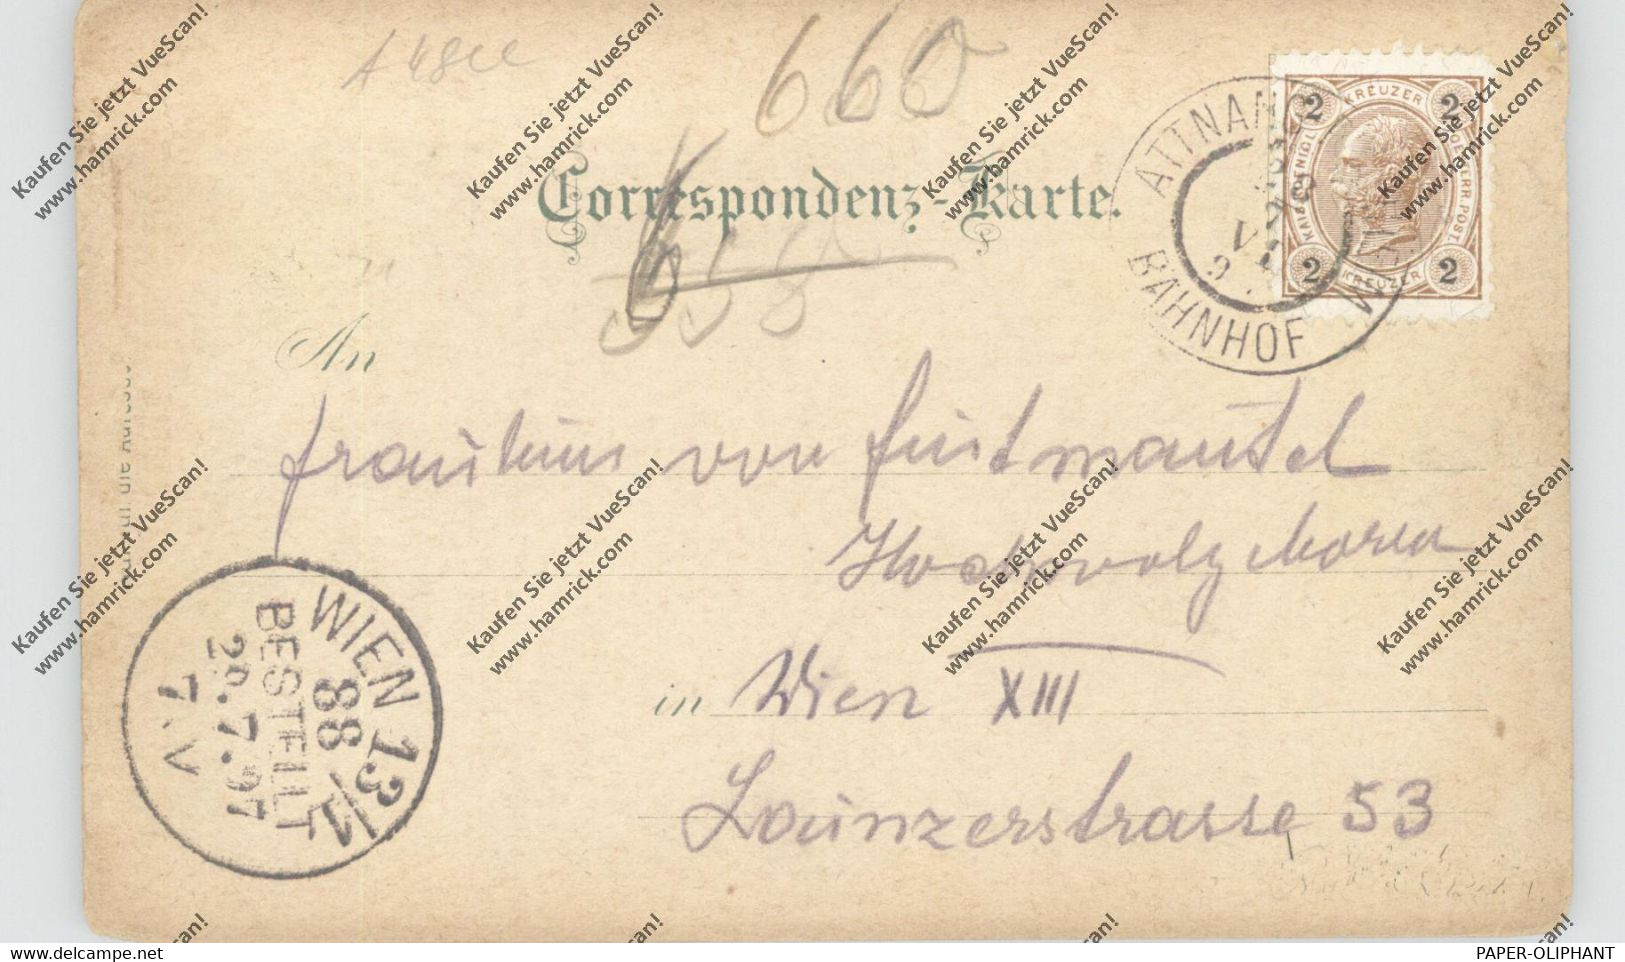 A 48cc
660
Correspondenz-Karte.
558
An
Fräulein von Feistmantel
Hochwolgeboren
in Wien XIII
Lainzerstrasse 53
2 KREUZER 2
KAIS. KOENIGL.
OESTERR. POST.
2 KREUZER 2
ATTNANG
BAHNHOF
WIEN 13/1
88
BESTELLT
29.7.97
7.V
Nur für die Adresse.
Kaufen Sie jetzt VueScan!
www.hamrick.com
PAPER-OLIPHANT
www.delcampe.net